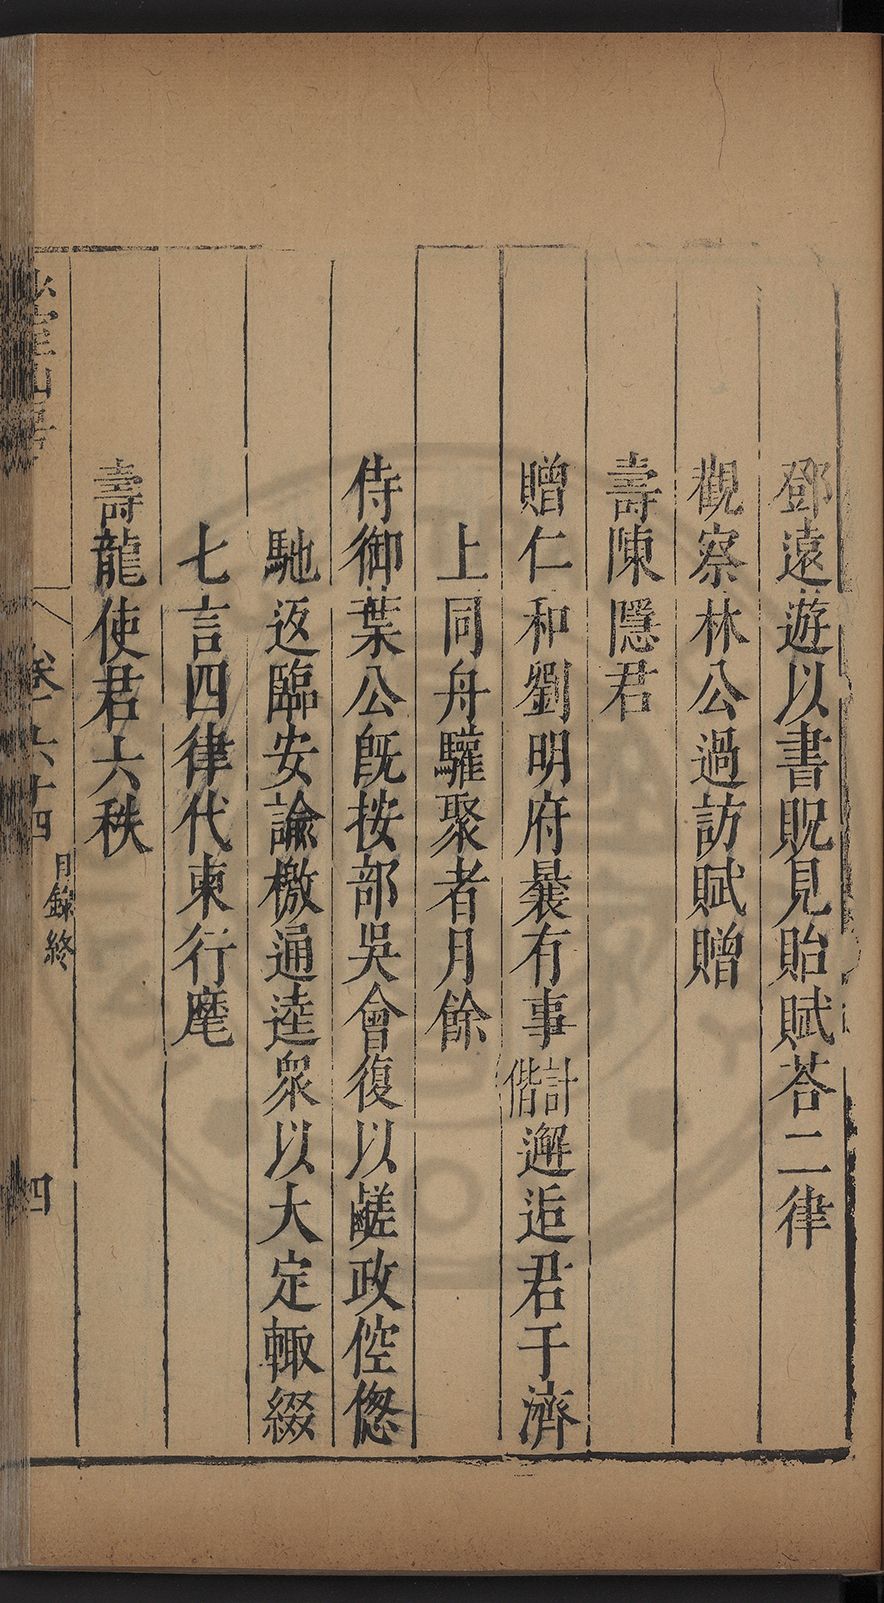 鄧遠遊以書貺見貽賦荅二律
觀察林公過訪賦贈
壽陳隱君
贈仁和劉明府曩有事計偕邂逅君于濟
上同舟驩聚者月餘
侍御葉公旣按部吳會復以鹺政倥偬
馳返臨安諭檄通逵衆以大定輙綴
七言四律代柬行麾
壽龍使君六秩
少室山房
卷六十四
目錄終
四